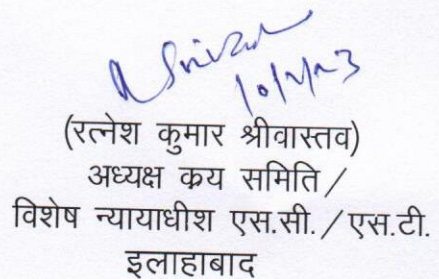 (रत्नेश कुमार श्रीवास्तव)
अध्यक्ष क्रय समिति /
विशेष न्यायाधीश एस.सी. / एस.टी.
इलाहाबाद